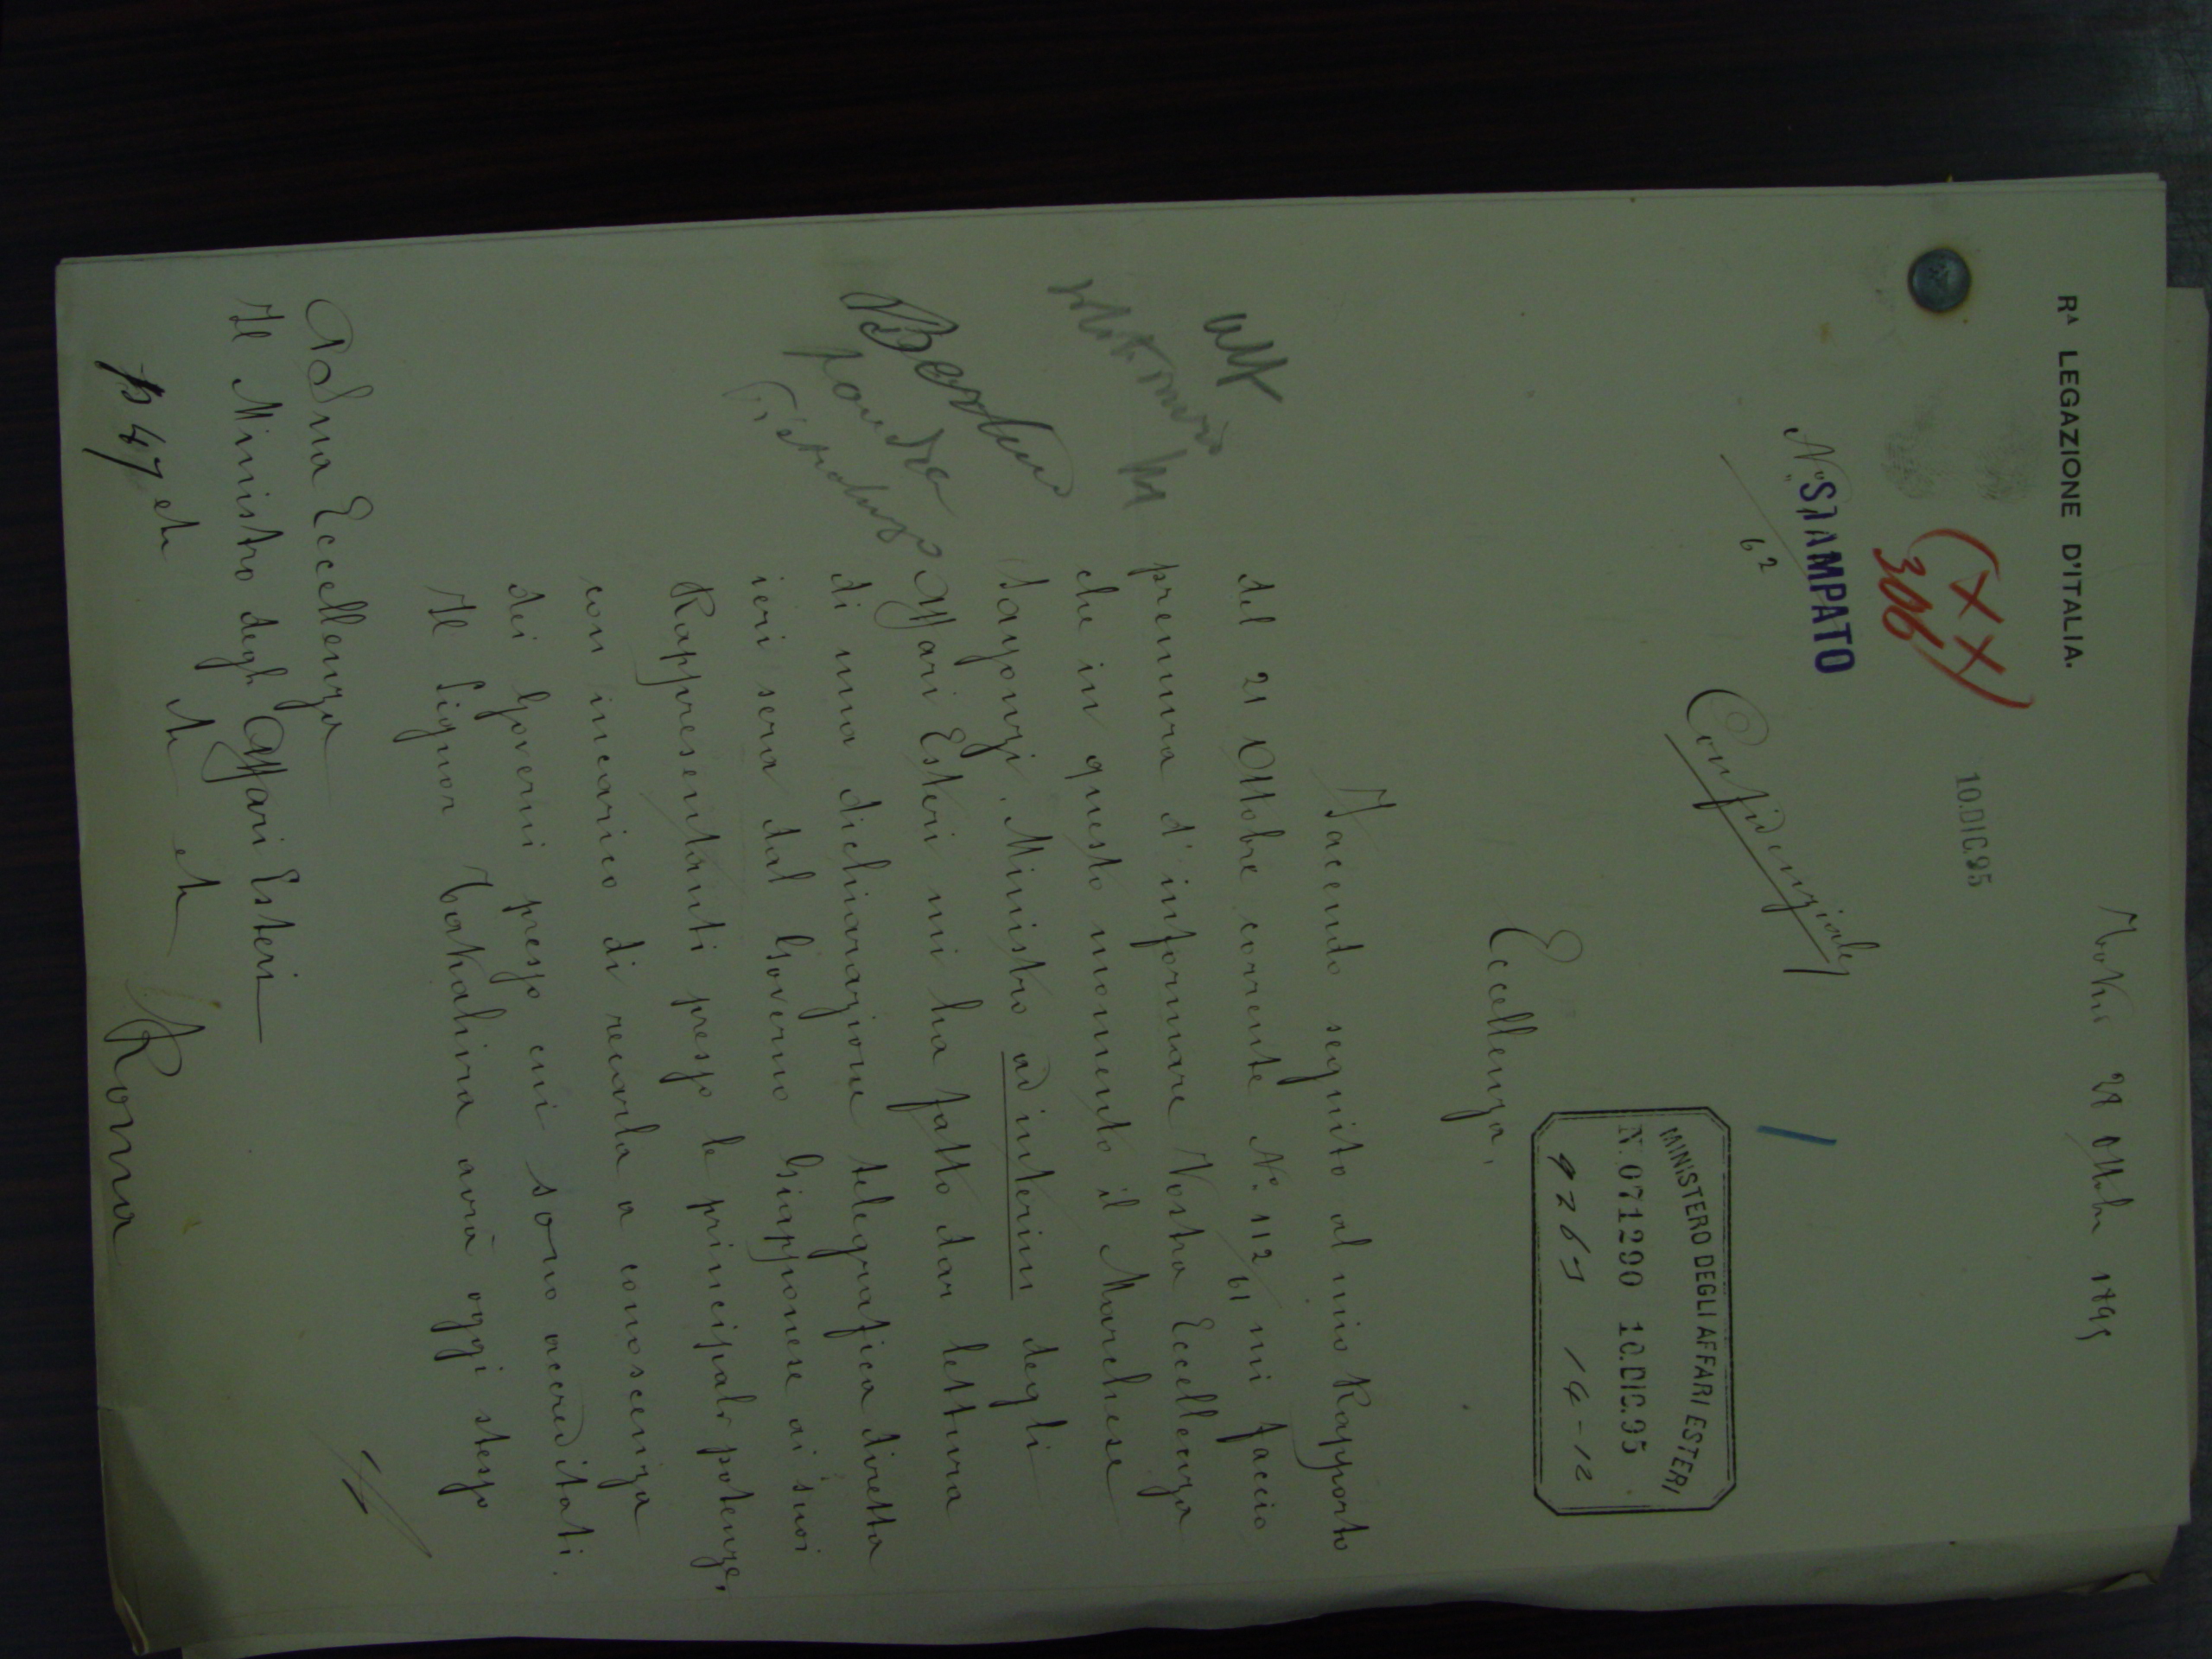 Rᴬ LEGAZIONE D'ITALIA.
Tokio 28 Ottobre 1895
10.DIC.95
(XX)
306
STAMPATO
N°
62
Confidenziale
MINISTERO DEGLI AFFARI ESTERI
N. 071290 10.DIC.95
14-12
Eccellenza,
Facendo seguito al mio Rapporto
del 21 Ottobre corrente N°. 112/61 mi faccio
premura d'informare Vostra Eccellenza
che in questo momento il Marchese
Sayonzi, Ministro ad interim degli
Affari Esteri mi ha fatto dar lettura
di una dichiarazione telegrafica diretta
ieri sera dal Governo Giapponese ai suoi
Rappresentanti presso le principali potenze,
con incarico di recarla a conoscenza
dei Governi presso cui sono accreditati.
Il Signor Takahira avrà oggi stesso
Berlino
Londra
Pietroburgo
A Sua Eccellenza
Il Ministro degli Affari Esteri
etc etc etc
Roma